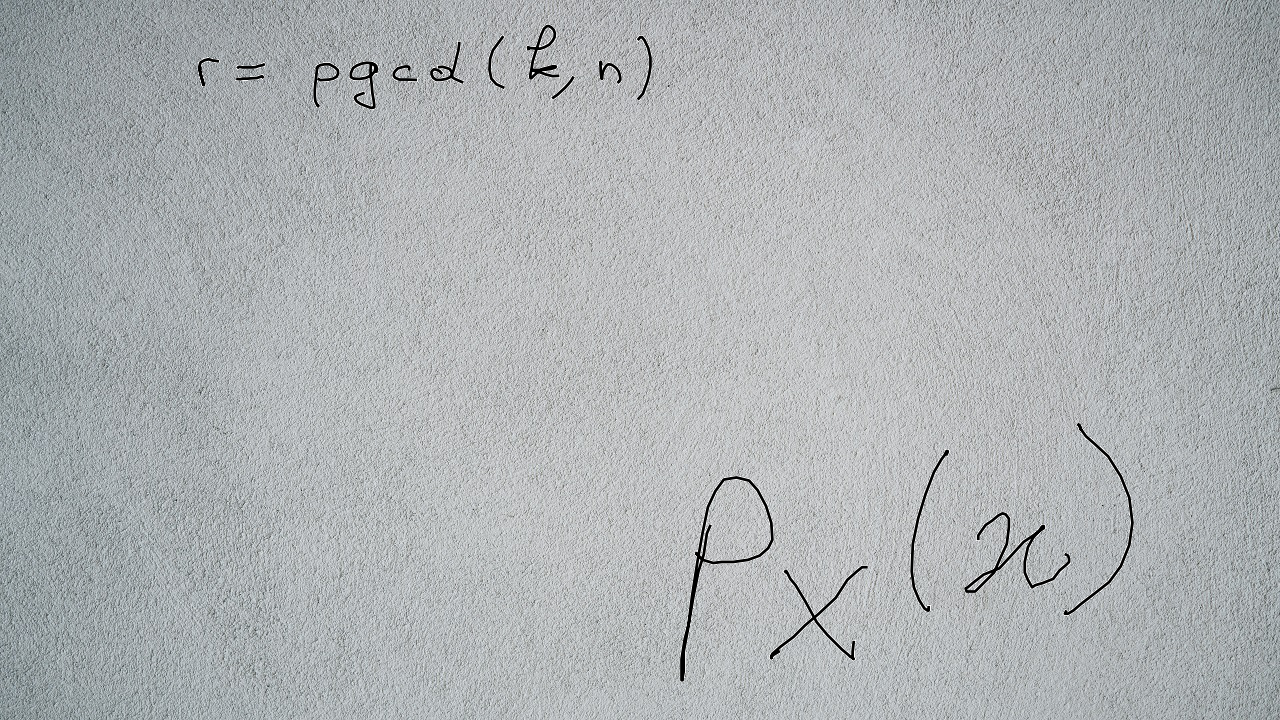 r = pgcd(k, n)
P_X(x)